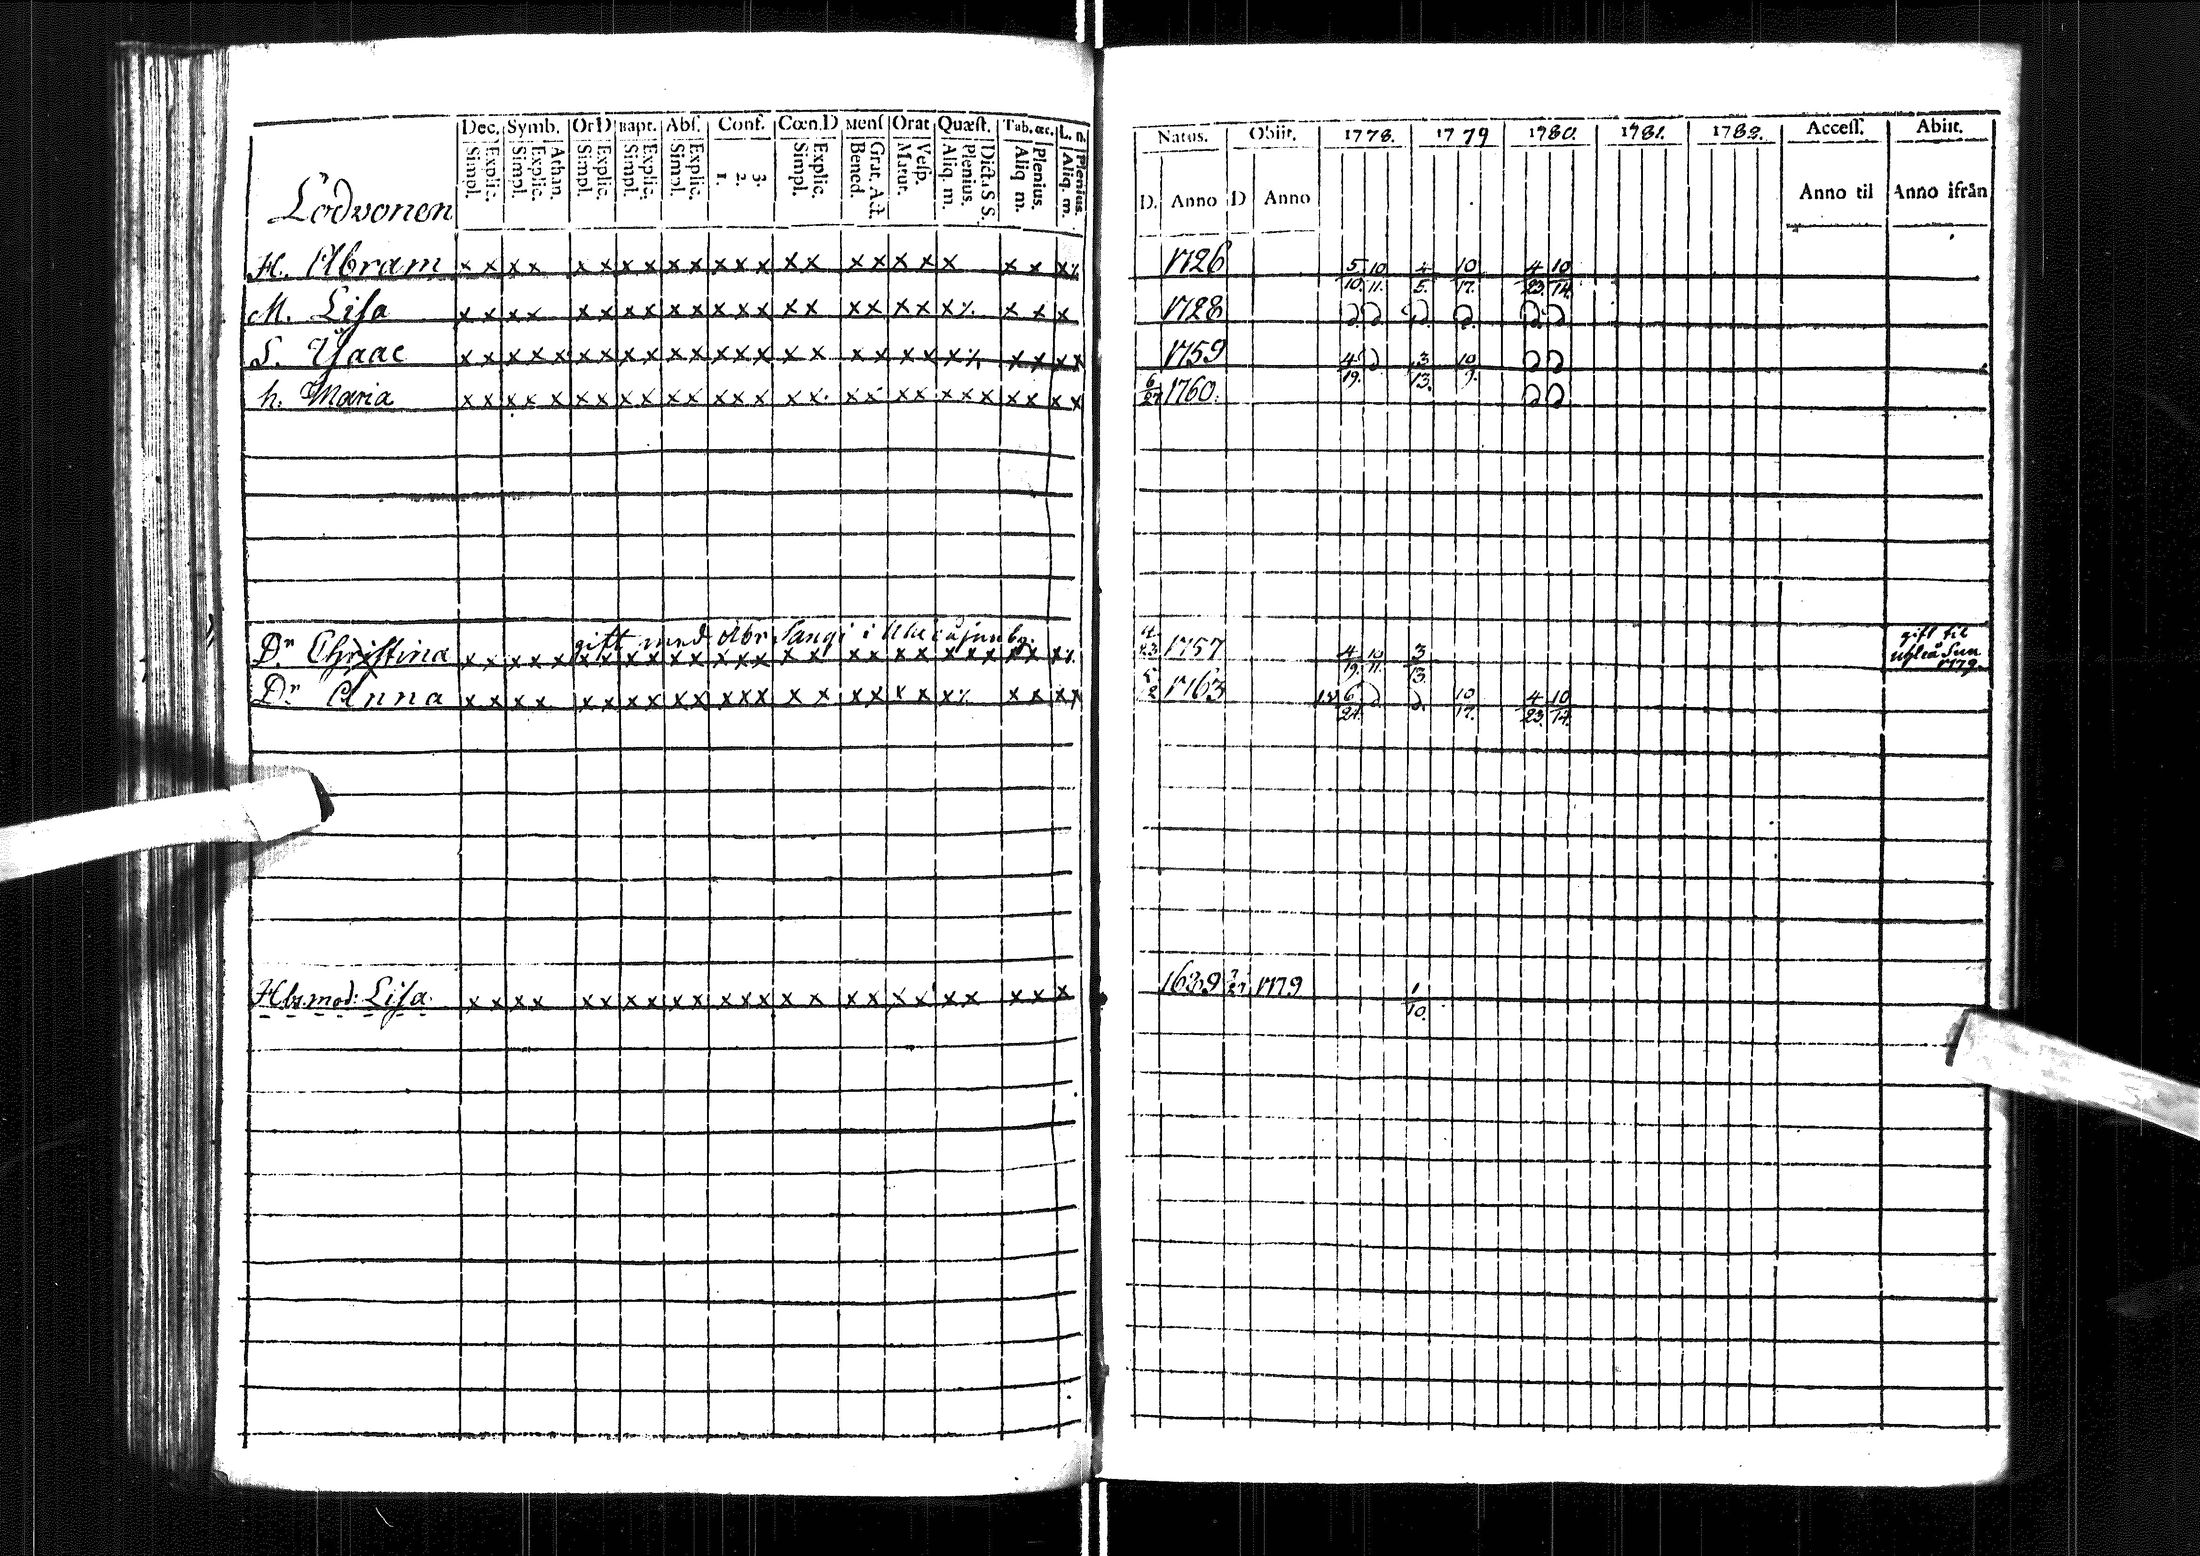 Dec. Symb. Or D Bapt. Abſ. Conf. Cœn.D Menſ Orat Quæſt. Tab. œc. L. n.
Simpl. Explic. Simpl. Explic. Athan. Simpl. Explic. Simpl. Explic. Simpl. Explic. 1. 2. 3. Simpl. Explic. Bened. Grat. Act. Matut. Veſp. Aliq. m. Plenius. Dicta S S. Aliq m. Plenius. Aliq. m. Plenius.
Lodvonen
H. Abram x x x x x x x x x x x x x x x x x x x x x x x
M. Liſa x x x x x x x x x x x x x x x x x x x x x x x
S. Yſaac x x x x x x x x x x x x x x x x x x x x x x x x x
h. Maria x x x x x x x x x x x x x x x x x x x x x x x x x x
gift med Abr i
Dr Chriſtina x x x x x x x x x x x x x x x x x x x x x x x x x
Dr Anna x x x x x x x x x x x x x x x x x x x x x x x x
Hbs. mod: Liſa. x x x x x x x x x x x x x x x x x x x x x x x
Natus. Obiit. 1778. 1779 1780. 1781. 1782. Acceſſ. Abiit.
D. Anno D Anno Anno til Anno ifrån
1726 5/10. 10/11. 4/5. 10/17. 4/23. 10/14.
1728
1759 4/19. 3/13. 10/9.
6/27 1760.
1757 4/19. 10/11. 3/13. gift til
1779.
1763 6/24. 10/17. 4/23. 10/14.
1689 1779 1/10.